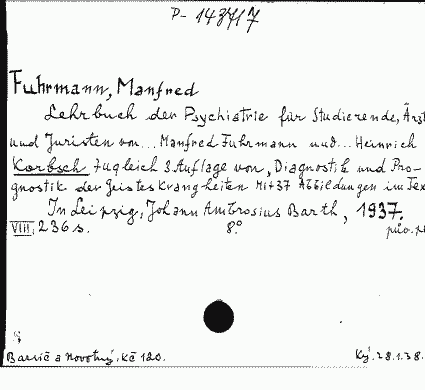 P- 143717
Fuhrmann, Manfred
Lehrbuch der Psychiatrie für Studierende, Ärzt
und Juristen von... Manfred Fuhrmann und... Heinrich
Korbsch zugleich 3. Auflage von, Diagnostik und Pro-
gnostik der Geisteskrangheiten Mit 37 Abbildungen im Tex
In Leipzig, Johann Ambrosius Barth, 1937.
VIII, 236 s. 8.° pův. pl
Barvič a Novotný, Kč 120. Ký. 28.1.38.